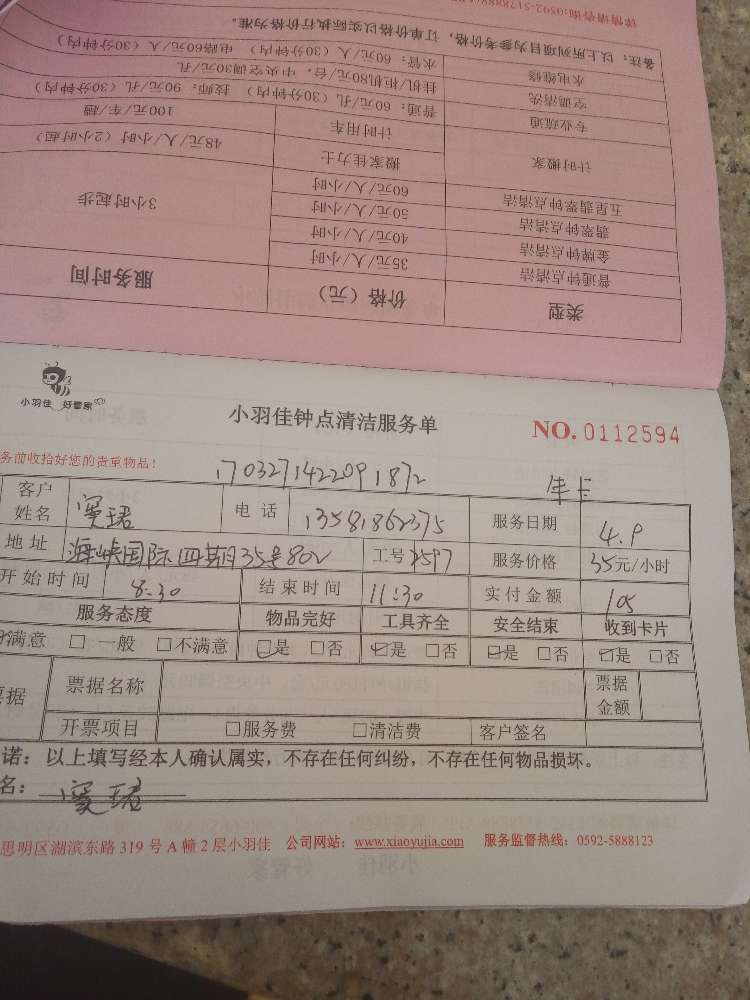 详情咨询:0592-
备注：以上所列项目为参考价格，订单价格以实际执行价格为准。
水电维修 水管：60元/人（30分钟内） 电路60元/人（30分钟内）
空调清洗 挂机/柜机80元/台，中央空调30元/孔
专业疏通 普通：60元/孔（30分钟内） 技师：90元/孔（30分钟内）
计时用车 100元/车/趟
计时搬家 搬家佳力士 48元/人/小时（2小时起）
五星翡翠钟点清洁 60元/人/小时
翡翠钟点清洁 50元/人/小时 3小时起步
金牌钟点清洁 40元/人/小时
普通钟点清洁 35元/人/小时
类型 价格（元） 服务时间
小羽佳 好管家
小羽佳钟点清洁服务单
NO.0112594
务前收拾好您的贵重物品！
1703271422091872
年卡
客户姓名 窦珺 电话 13581862375 服务日期 4.9
地址 海峡国际四期35号802 工号 2597 服务价格 35元/小时
开始时间 8:30 结束时间 11:30 实付金额 105
服务态度 物品完好 工具齐全 安全结束 收到卡片
满意 □ 一般 □不满意 □是 □否 □是 □否 □是 □否 □是 □否
票据 票据名称 票据金额
开票项目 □服务费 □清洁费 客户签名
诺：以上填写经本人确认属实，不存在任何纠纷，不存在任何物品损坏。
名：窦珺
思明区湖滨东路319号A幢2层小羽佳 公司网站：www.xiaoyujia.com 服务监督热线：0592-5888123